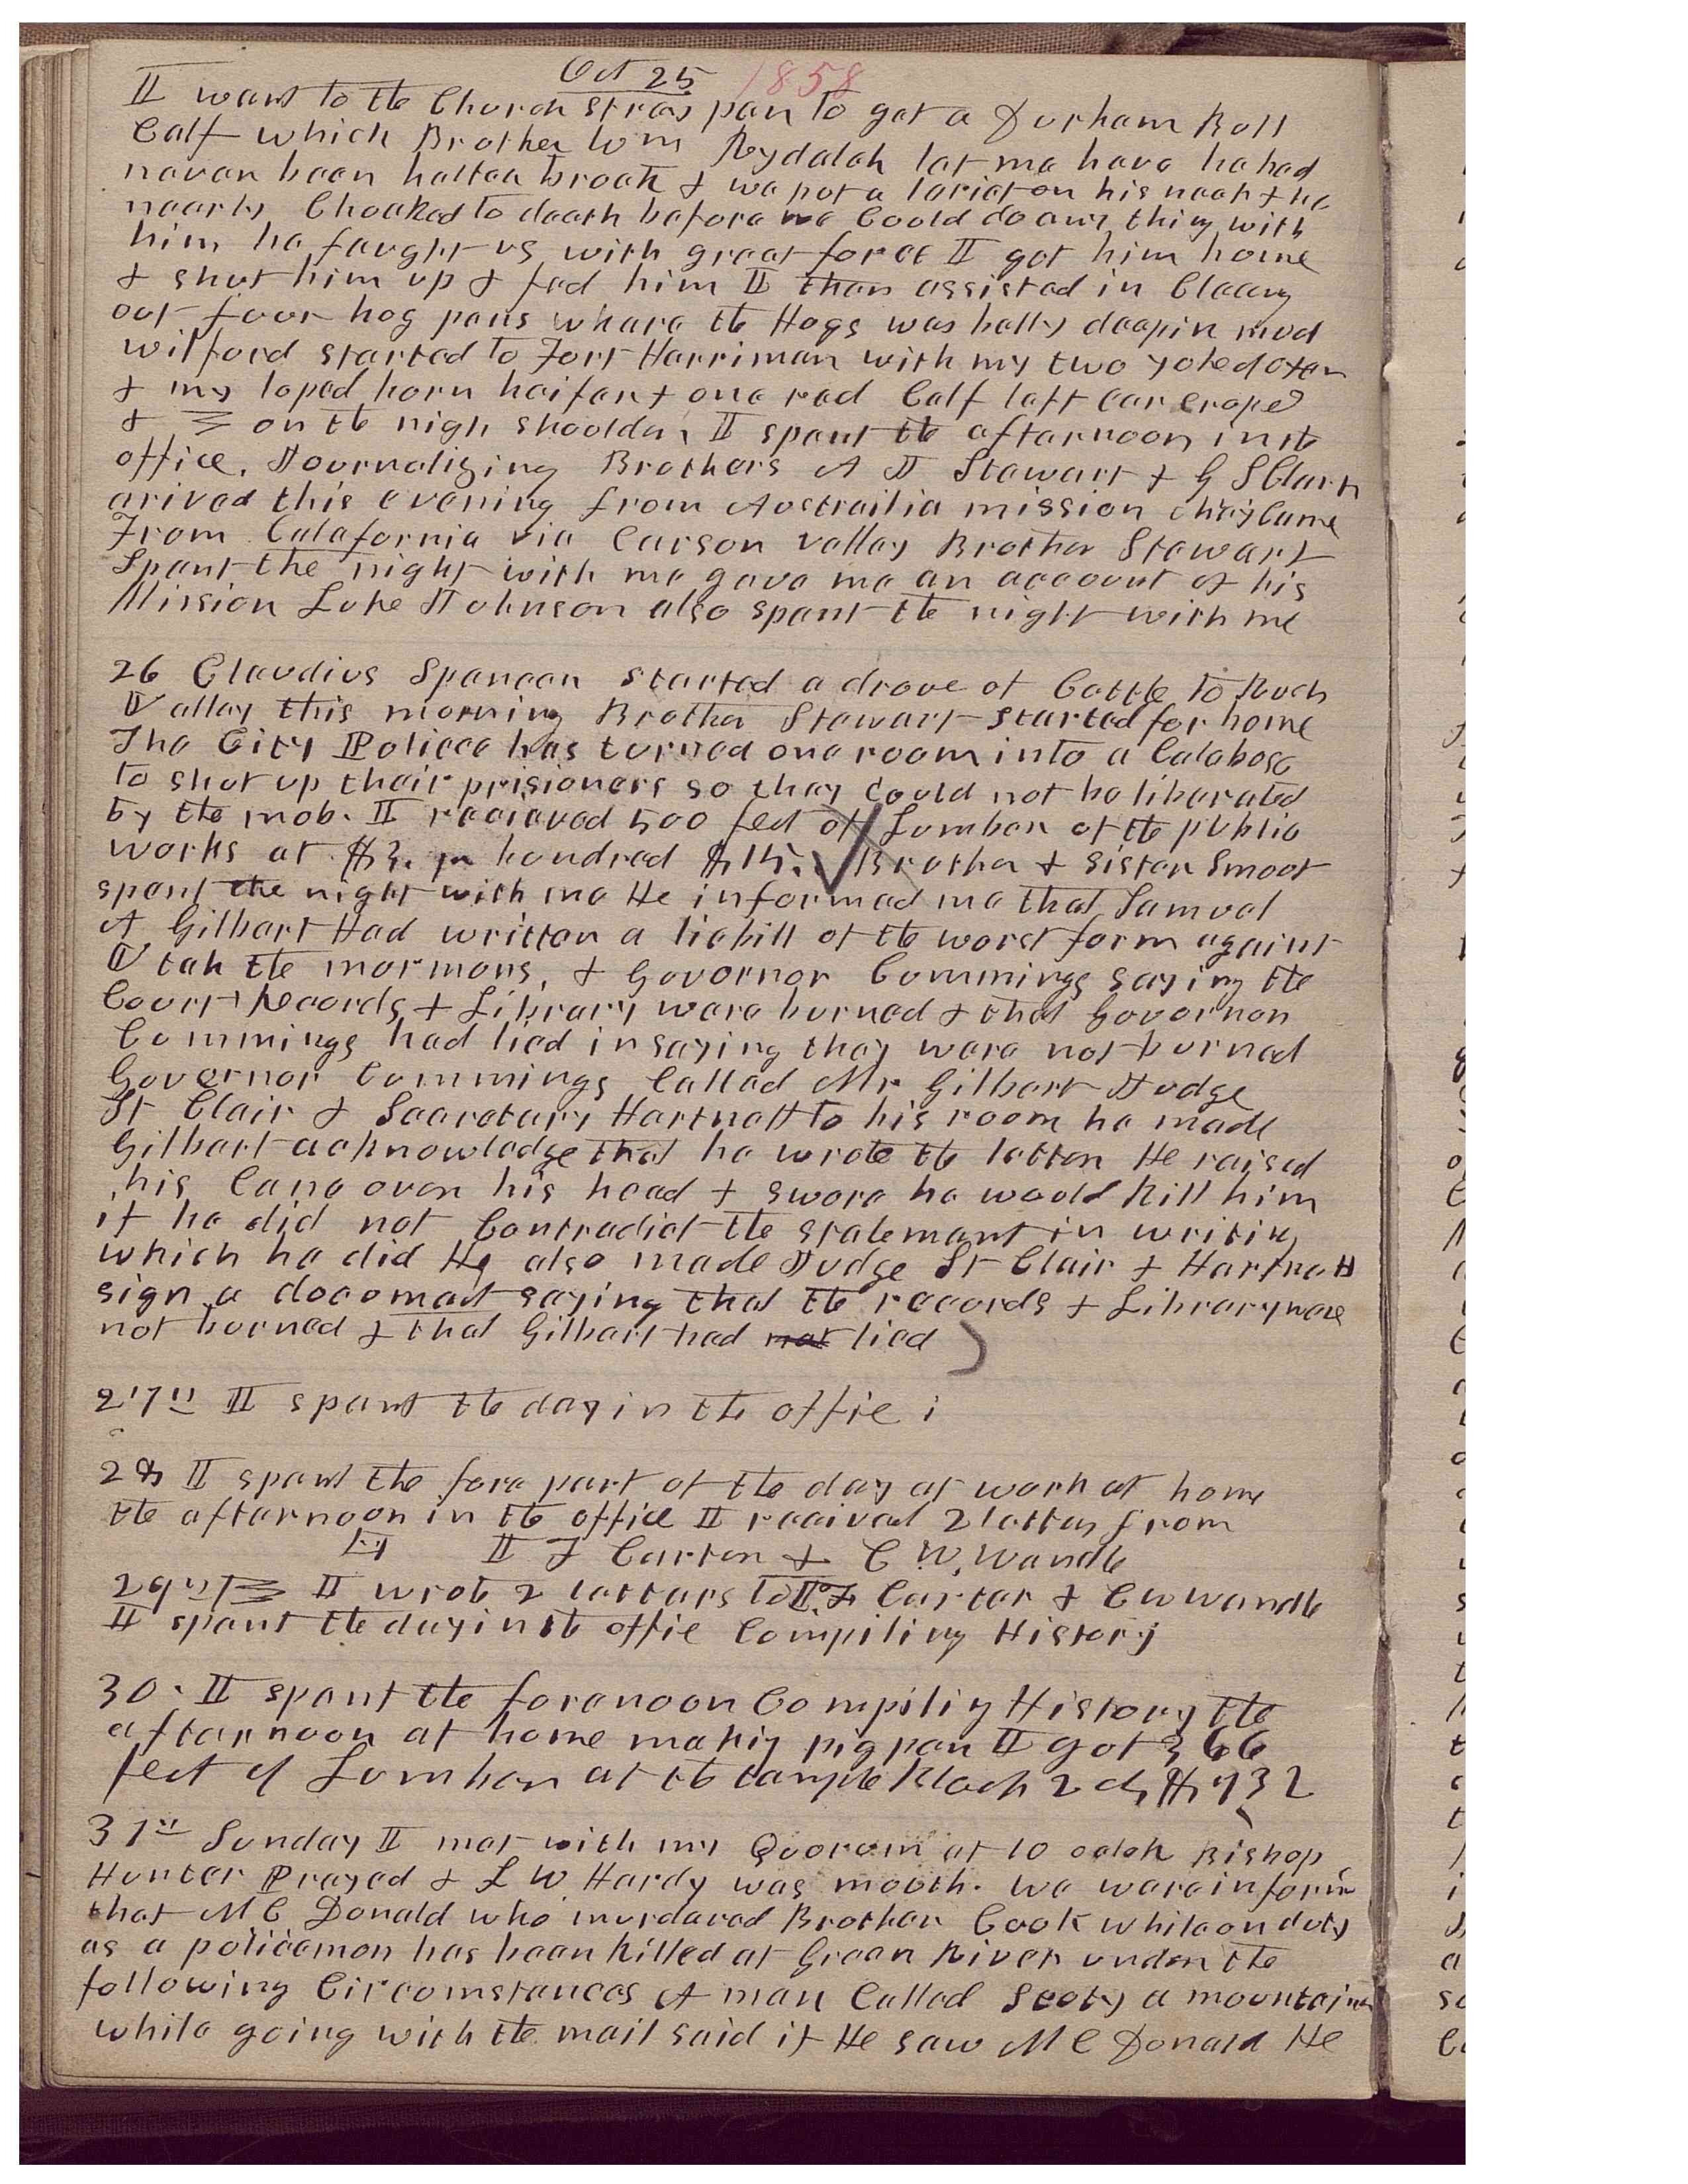 Oct 25 1858
I went to the Church stray pen to get a Durham Bull
Calf which Brother Wm Rydalch let me have he had
never been halter broak & we pot a lariet on his neck & he
nearly Choaked to death before we Could do any thing with
him he faught us with great force I got him home
& shut him up & fed him I then assisted in Cleang
out four hog pens whare the Hogs was belly deep in mud
wilford started to Fort Harriman with my two yoked oxen
& my loped horn heifer & one red Calf left ear croped
& on the nigh shoulder I spent the afternoon in the
office. Journalizing Brothers A J Stewart & G S Clark
arived this evening from Austrailia mission they Came
From Calafornia via Carson valley Brother Stewart
Spent the night with me gave me an account of his
Mission Luke Johnson also spent the night with me
26 Claudius Spencer started a drove of Cattle to Ruch
Valley this morning Brother Stewart started for home
The City Police has turned one room into a Calabose
to shut up their prisioners so they could not be liberated
by the mob. I recieved 500 feet of Lumber of the public
works at $3. per hundred $15. Brother & Sister Smoot
spent the night with me He informed me that Samuel
A Gilbert Had written a libill of the worst form against
Utah the mormons, & Governor Cummings saying the
Court Records & Library were burned & that Governor
Cummings had lied in saying they were not burned
Governor Cummings Called Mr Gilbert Judge
St Clair & Secretary Hartnett to his room he made
Gilbert acknowledge that he wrote the letter He raised
his Cane over his head & swore he would Kill him
if he did not Contradict the statement in writing
which he did He also made Judge St Clair & Hartnett
sign a document saying that the records & Library ware
not burned & that Gilbert had not lied
27th I spent the day in the offie
28 I spent the fore part of the day at work at home
the afternoon in the office I receivd 2 letters from
I F Carter & C W. Wandle
29th I wrote 2 letters to I. F Carter & C W Wandle
I spent the day in the offie Compiling History
30. I spent the forenoon Compiling History the
afternoon at home making pig pen I got 366
feet of Lumber at the temple Block 2 ch $732
31st Sunday I met with my Quorum at 10 oclok Bishop
Hunter Prayed & L W Hardy was mouth. We ware inform
that Mc Donald who murdered Brother Cook while on duty
as a policeman has been Killed at Green River under the
following Circumstances A man Called Scoty a mountainer
while going with the mail said if He saw Mc Donald He